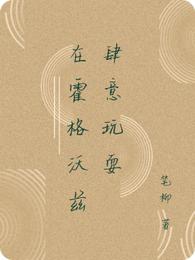 在霍格沃兹
肆意玩耍
笔柳 著